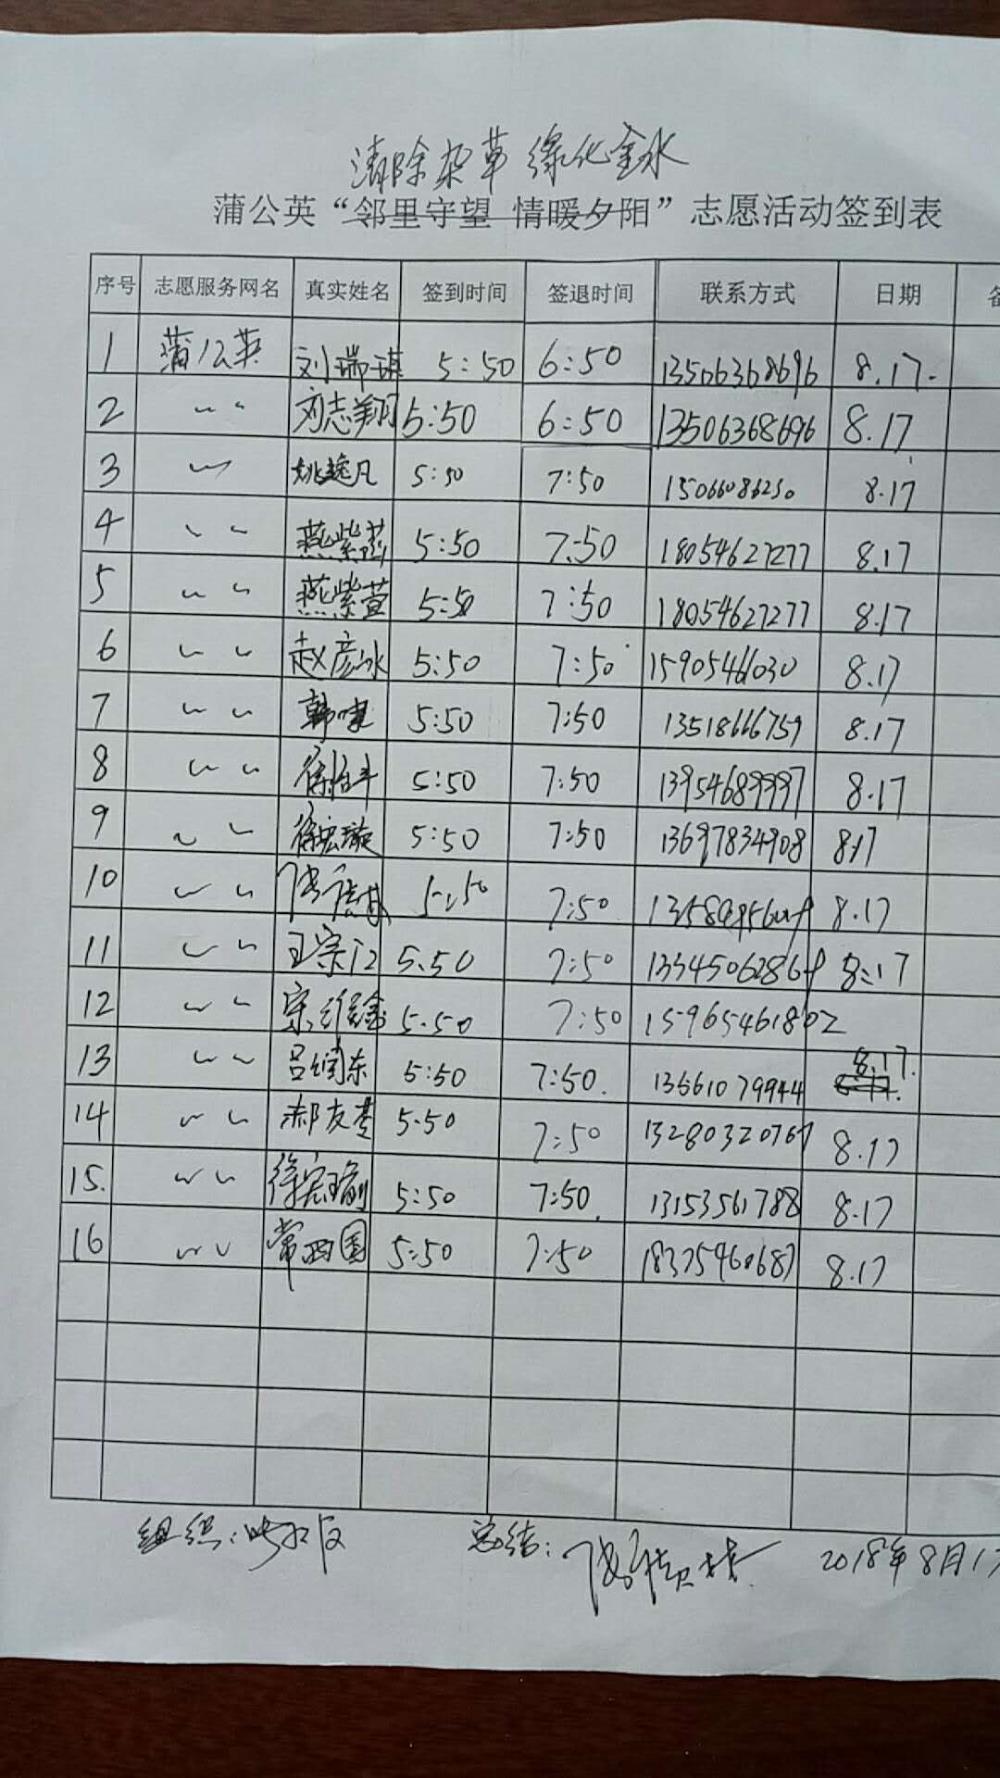 清除杂草 绿化金水
蒲公英“邻里守望 情暖夕阳”志愿活动签到表
序号 志愿服务网名 真实姓名 签到时间 签退时间 联系方式 日期
1 蒲公英 刘瑞琪 5:50 6:50 13506368696 8.17.
2 〃 刘志翔 5:50 6:50 13506368696 8.17
3 〃 姚逸凡 5:50 7:50 15066086250 8.17
4 〃 燕紫菡 5:50 7:50 18054627277 8.17
5 〃 燕紫萱 5:50 7:50 18054627277 8.17
6 〃 赵彦冰 5:50 7:50 15905466030 8.17
7 〃 韩 5:50 7:50 13518666759 8.17
8 〃 徐 5:50 7:50 13954689997 8.17
9 〃 徐宏璇 5:50 7:50 13697834908 8.17
10 〃 5:50 7:50 8.17
11 〃 王宗江 5.50 7:50 8.17
12 〃 宋维鑫 5.50 7:50 15965461802
13 〃 吕润东 5:50 7:50. 13661079944 8.17.
14 〃 郝友 5.50 7:50 8.17
15. 〃 徐宏瑜 5:50 7:50. 13153561788 8.17
16 〃 常 5:50 7:50 18375460687 8.17
组织: 总结: 2018年8月17